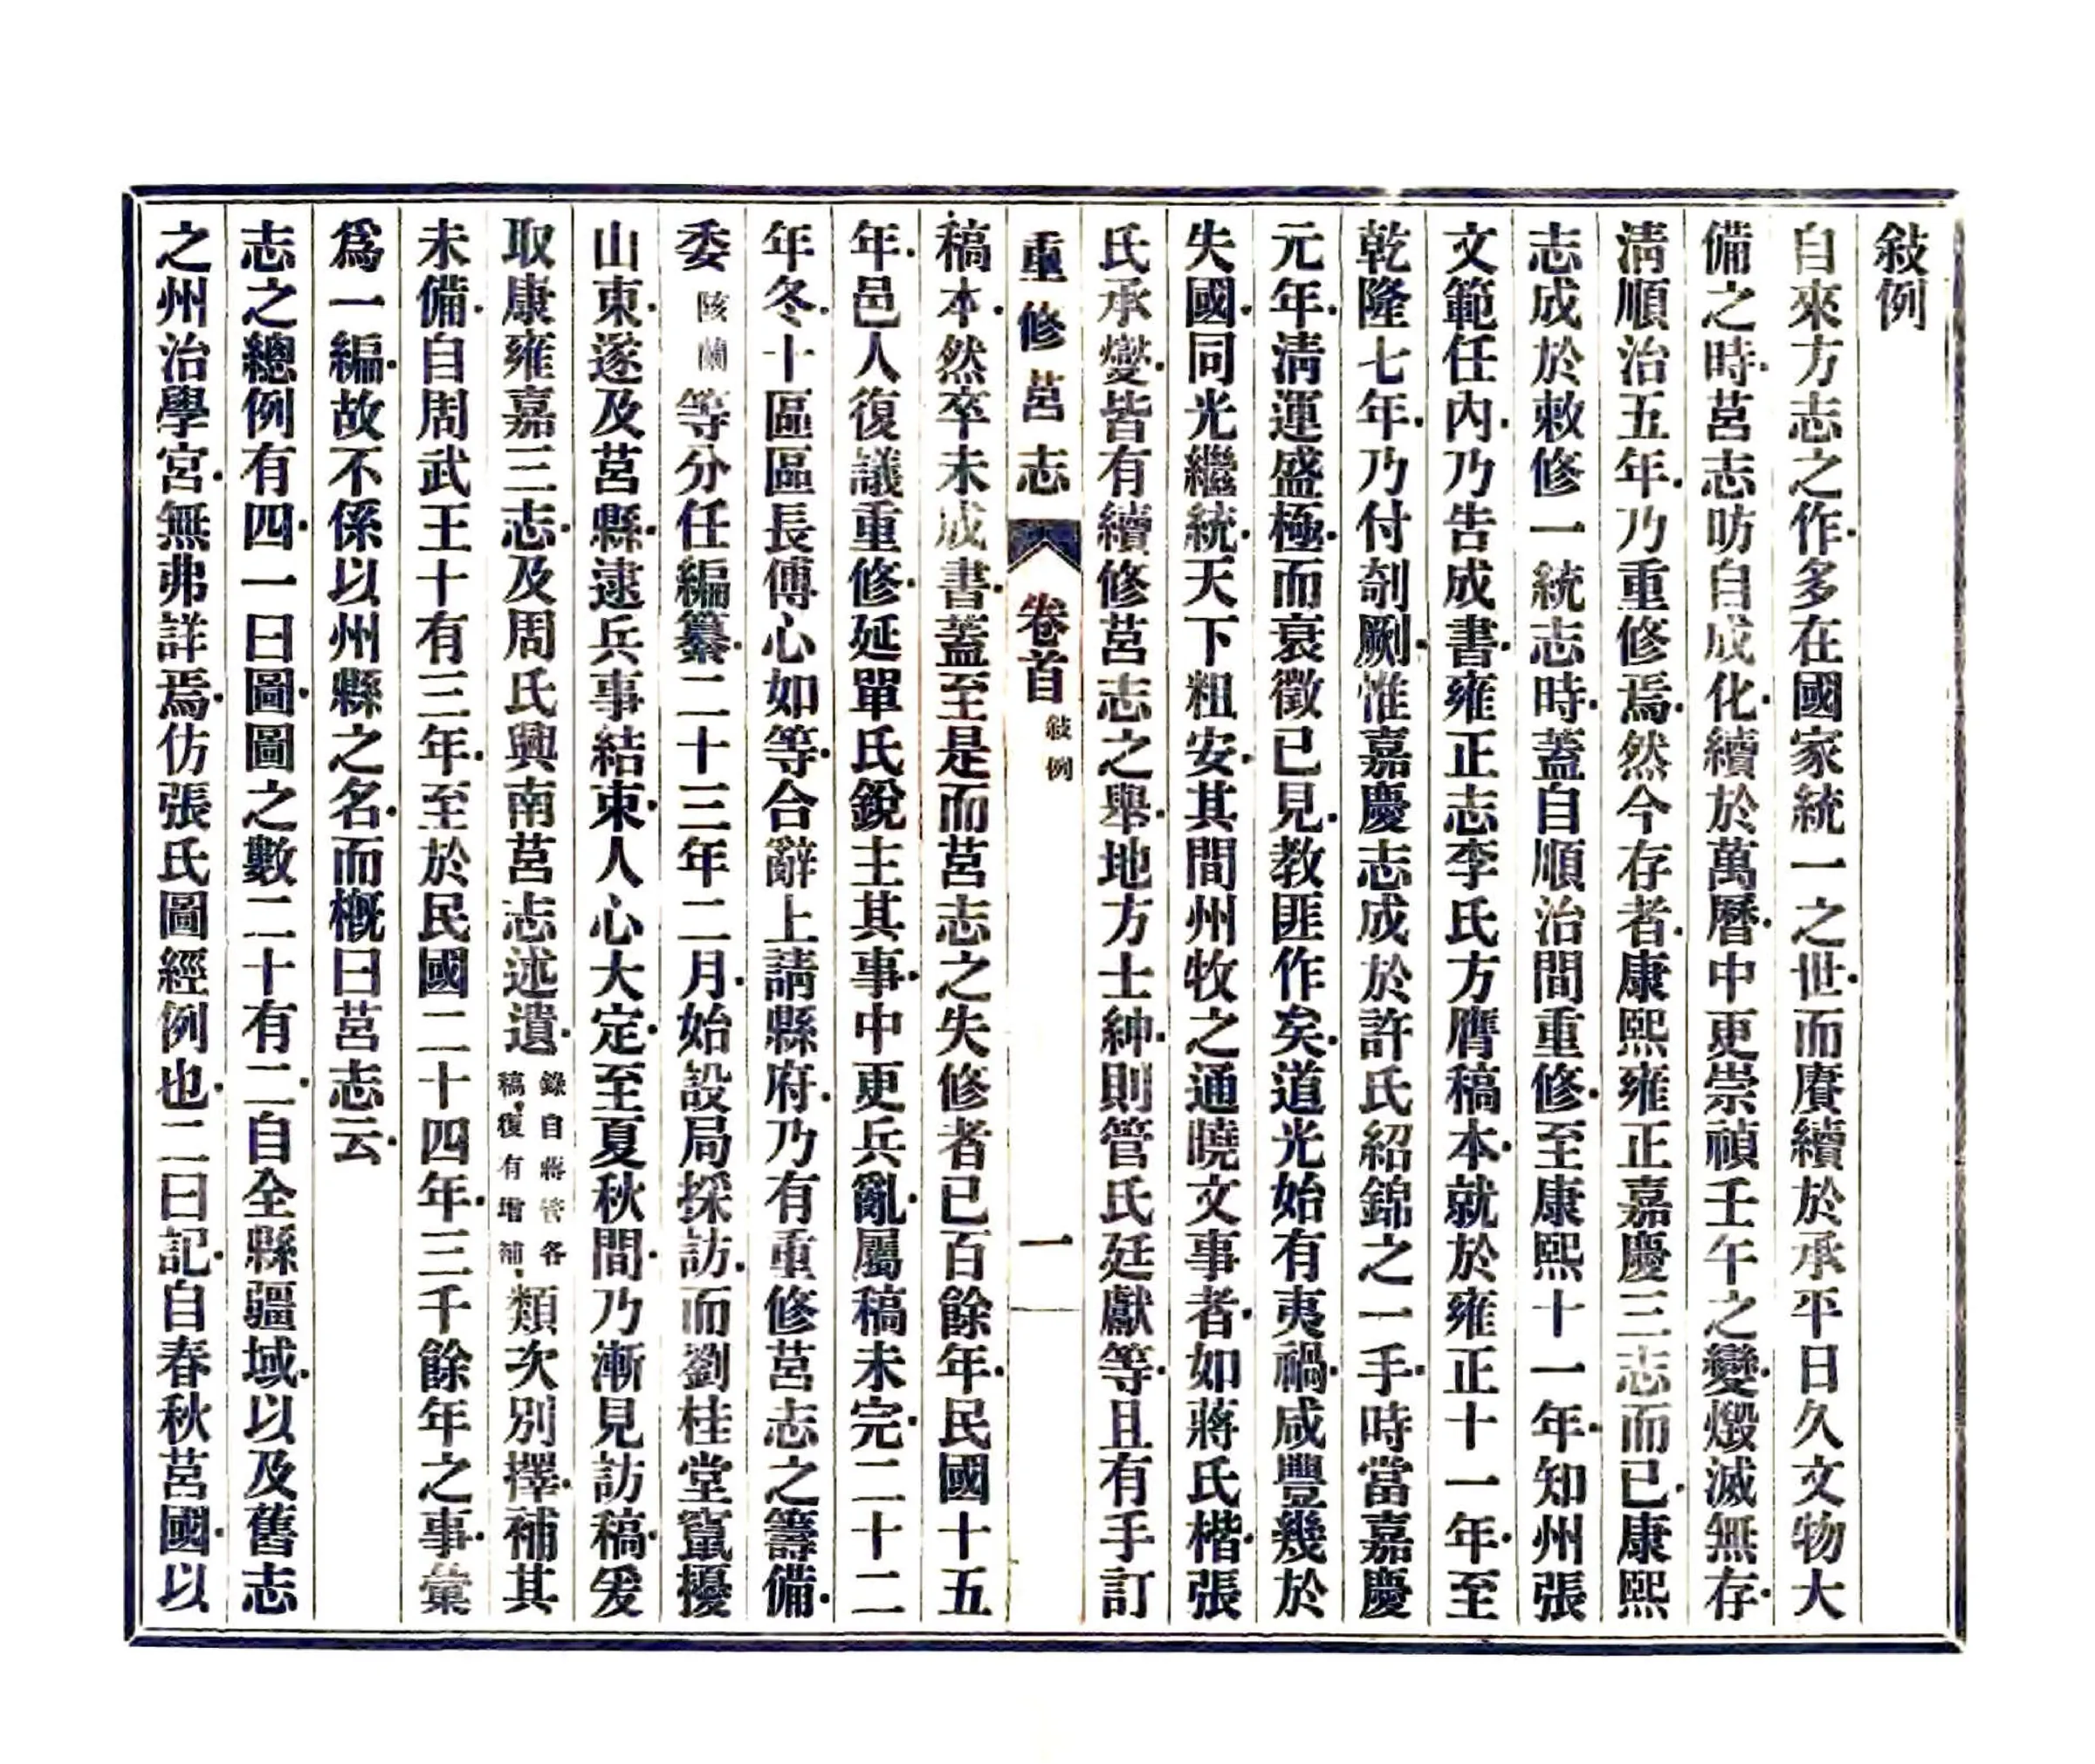 敍例
自來方志之作.多在國家統一之世.而賡續於承平日久文物大
備之時.莒志昉自成化.續於萬曆.中更崇禎壬午之變.燬滅無存.
清順治五年.乃重修焉.然今存者.康熙雍正嘉慶三志而已.康熙
志成於敕修一統志時.蓋自順治間重修.至康熙十一年.知州張
文範任內.乃告成書.雍正志李氏方膺稿本.就於雍正十一年.至
乾隆七年.乃付剞劂.惟嘉慶志成於許氏紹錦之一手.時當嘉慶
元年.清運盛極.而衰徵已見.教匪作矣.道光始有夷禍.咸豐幾於
失國.同光繼統.天下粗安.其間州牧之通曉文事者.如蔣氏楷.張
氏承燮.皆有續修莒志之舉.地方士紳.則管氏廷獻等.且有手訂
重修莒志 卷首 敍例 一
稿本.然卒未成書.蓋至是而莒志之失修者已百餘年.民國十五
年.邑人復議重修.延單氏銳主其事.中更兵亂.屬稿未完.二十二
年冬.十區區長傅心如等.合辭上請縣府.乃有重修莒志之籌備.
委 陔蘭 等分任編纂.二十三年二月.始設局採訪.而劉桂堂竄擾
山東.遂及莒縣.逮兵事結束.人心大定.至夏秋間.乃漸見訪稿.爰
取康雍嘉三志.及周氏興南莒志述遺.錄自蔣管各稿復有增補.類次別擇.補其
未備.自周武王十有三年.至於民國二十四年.三千餘年之事.彙
爲一編.故不係以州縣之名.而概曰莒志云.
志之總例有四.一曰圖.圖之數二十有二.自全縣疆域.以及舊志
之州治學宮.無弗詳焉.仿張氏圖經例也.二曰記.自春秋莒國.以